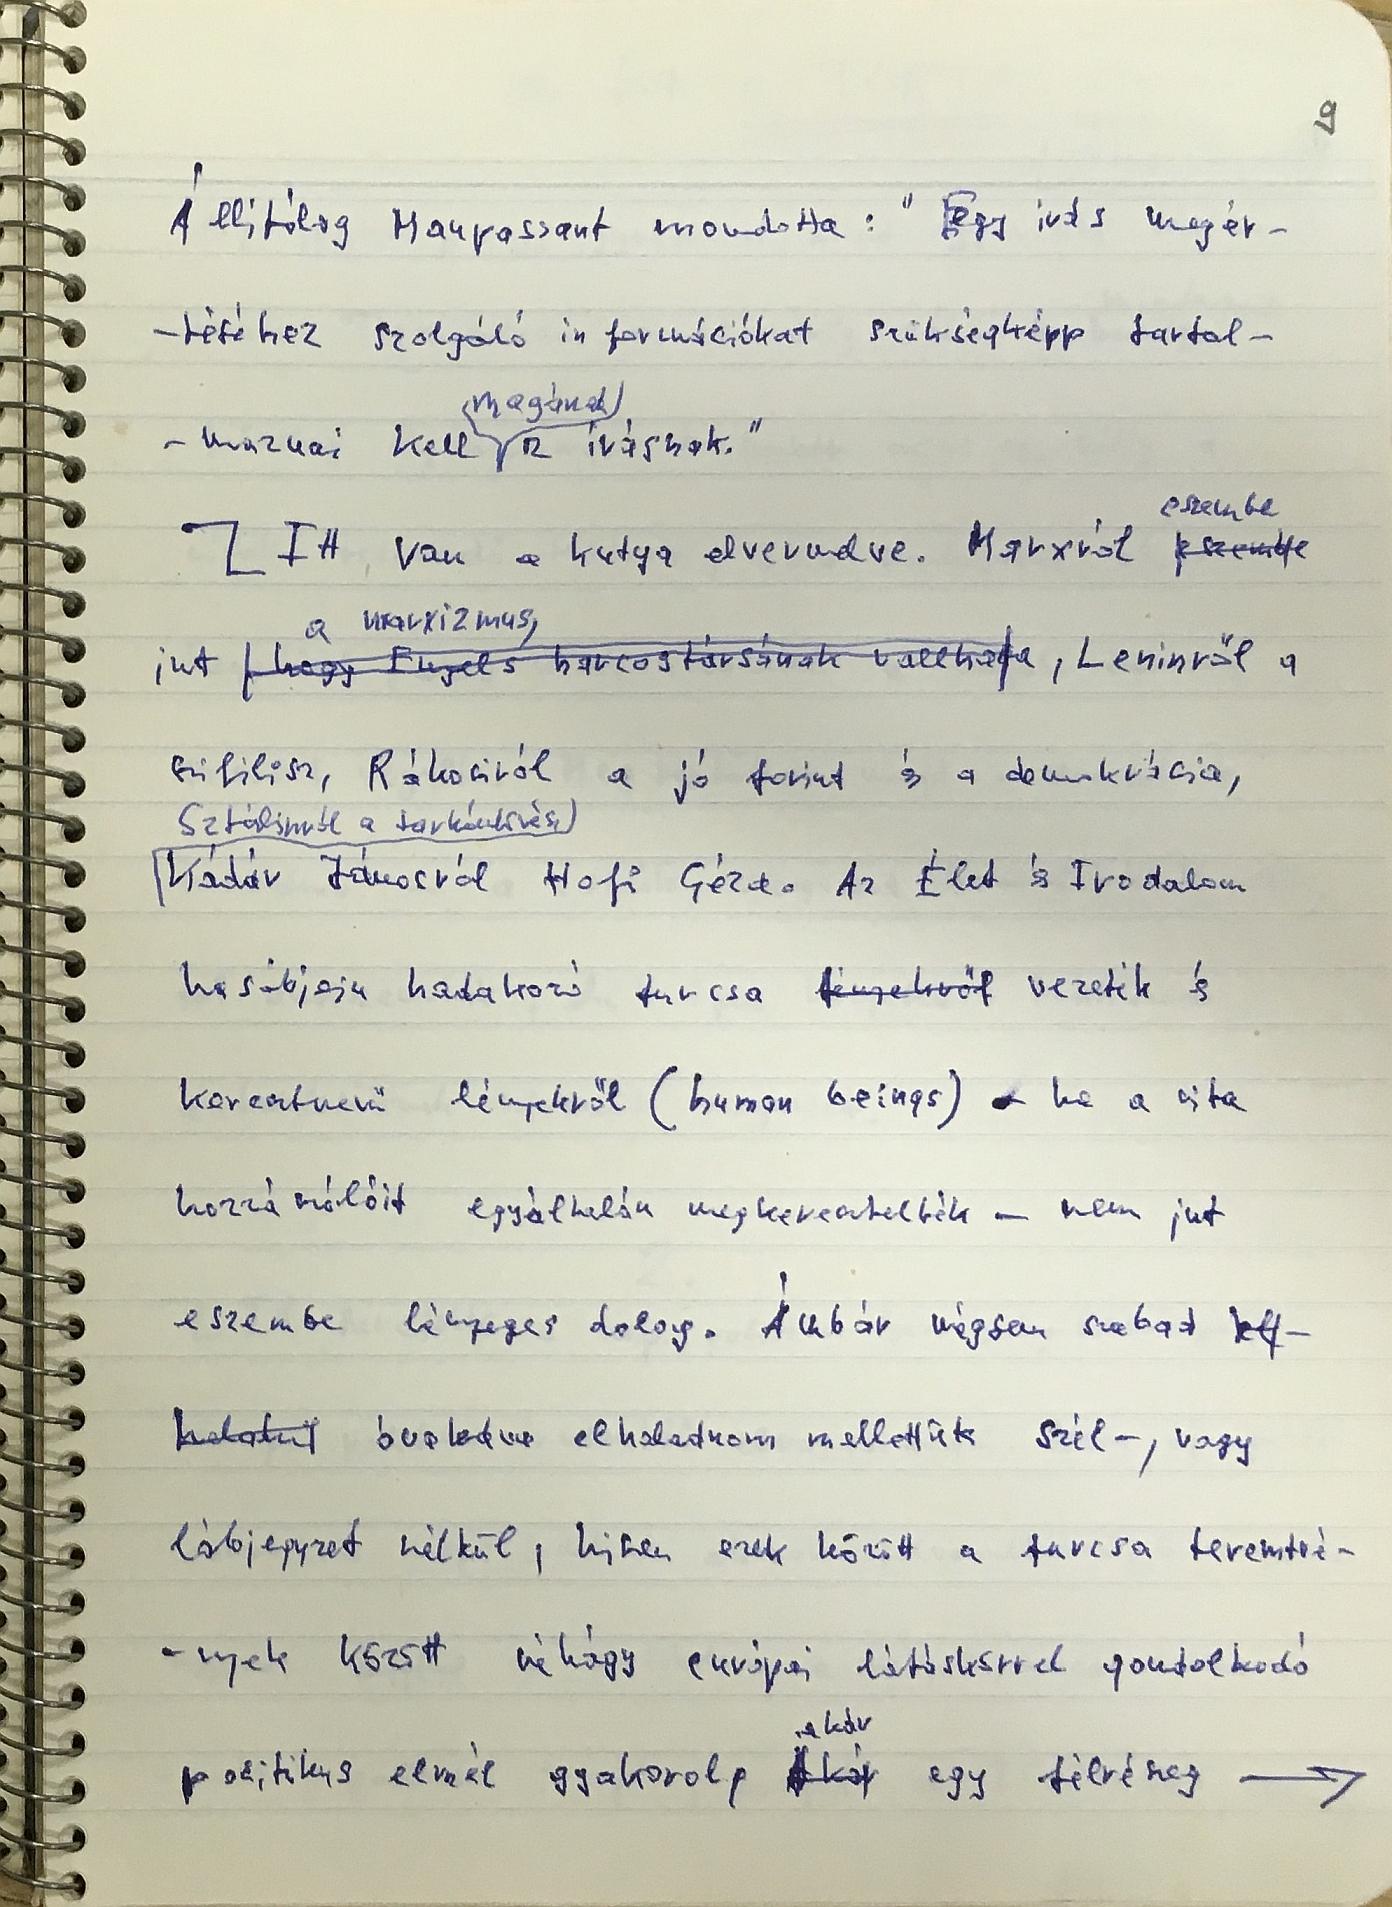 9
Állítólag Maupassant mondotta: "Egy irás megér-
-téséhez szolgáló információkat szükségképp tartal-
magának
-maznai kell az írásnak."
Itt van a kutya elvermelve. Marxról eszembe
eszembe
a marxizmus,
jut hogy Engels harcostársának vallhatta, Leninről a
szifilisz, Rákosiról a jó forint és a demokrácia,
Sztálinról a tarkónlövés
Kádár Jánosról Hofi Géza. Az Élet és Irodalom
hasábjain hadakozó furcsa lényekről vezeték és
keresztnevű lényekről (human beings) - ha a vita
hozzászólóit egyáltalán megkeresztelték - nem jut
eszembe lényeges dolog. Ámbár mégsem szabad
óvakodva elhaladnom mellettük szél-, vagy
lábjegyzet nélkül, hiszen ezek között a furcsa teremtmé-
-nyek között néhágy európai látáskörrel gondolkodó
akár
politikus elmél gyakorolp akár egy félrészeg →